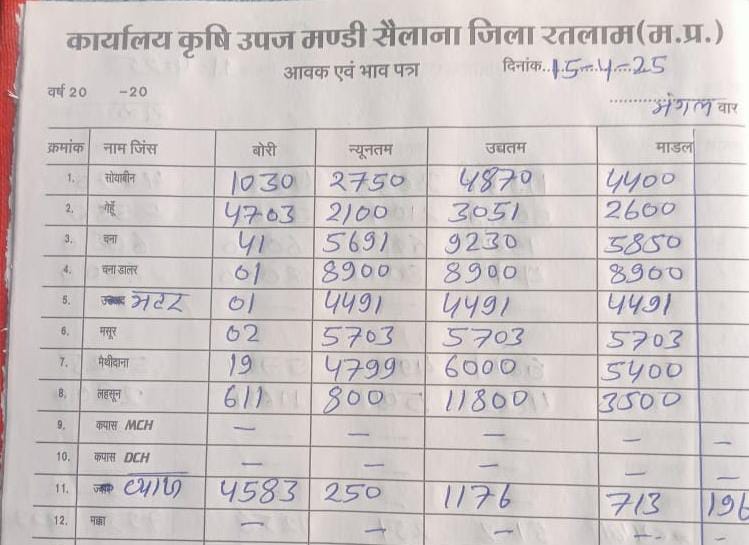 कार्यालय कृषि उपज मण्डी सैलाना जिला रतलाम(म.प्र.)
आवक एवं भाव पत्रा दिनांक..15-4-25
वर्ष 20 -20
मंगल वार
क्रमांक नाम जिंस बोरी न्यूनतम उच्चतम माडल
1. सोयाबीन 1030 2750 4870 4400
2. गेहूँ 4703 2100 3051 2600
3. चना 41 5691 9230 5850
4. चना डालर 01 8900 8900 8900
5. मटर 01 4491 4491 4491
6. मसूर 02 5703 5703 5703
7. मैथीदाना 19 4799 6000 5400
8. लहसून 611 800 11800 3500
9. कपास MCH — — — — —
10. कपास DCH — — — — —
11. प्याज 4583 250 1176 713 196
12. मक्का — — — — —